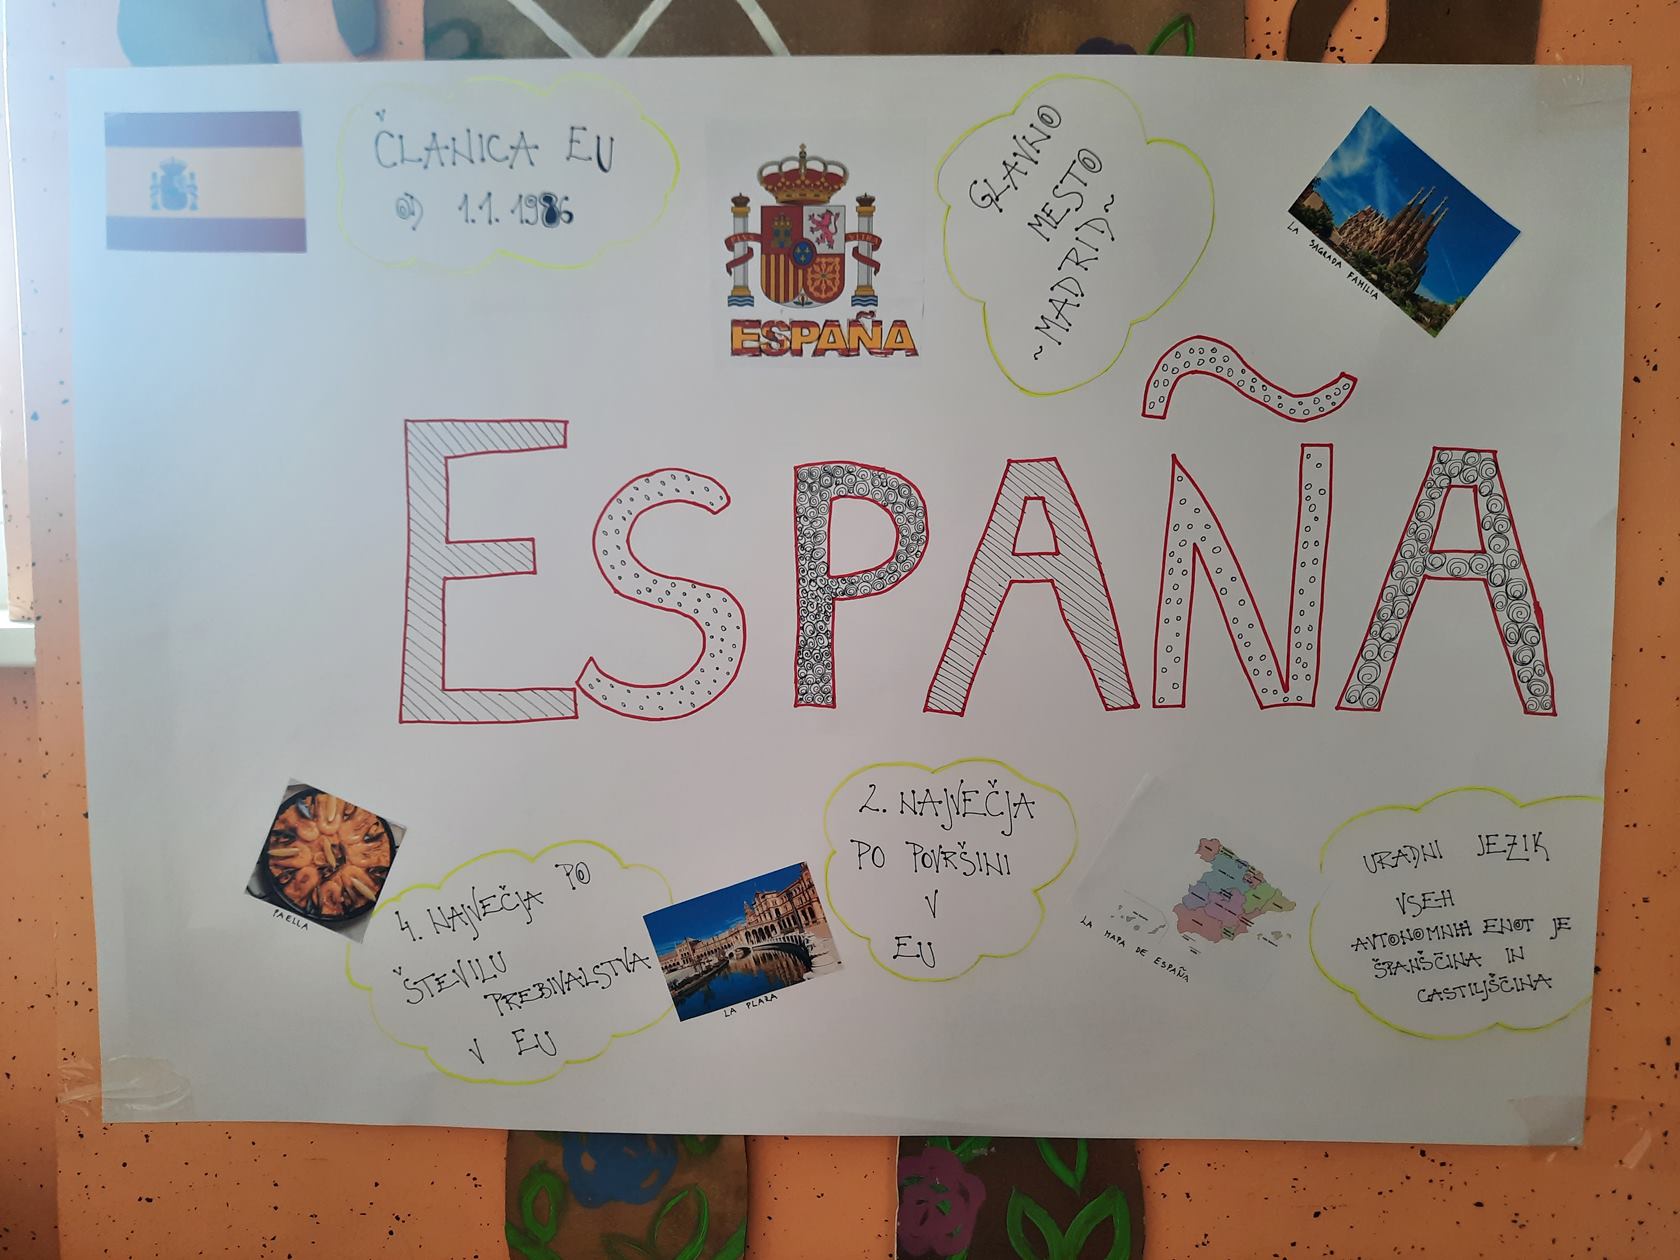 ČLANICA EU
OD 1.1. 1986
PLVS VLTRA
ESPAÑA
GLAVNO
MESTO
~MADRID~
LA SAGRADA FAMILIA
ESPAÑA
PAELLA
4. NAJVEČJA PO
ŠTEVILU
PREBIVALSTVA
V EU
LA PLAZA
2. NAJVEČJA
PO POVRŠINI
V
EU
LA MAPA DE ESPAÑA
URADNI JEZIK
VSEH
AVTONOMNIH ENOT JE
ŠPANŠČINA IN
CASTILJŠČINA